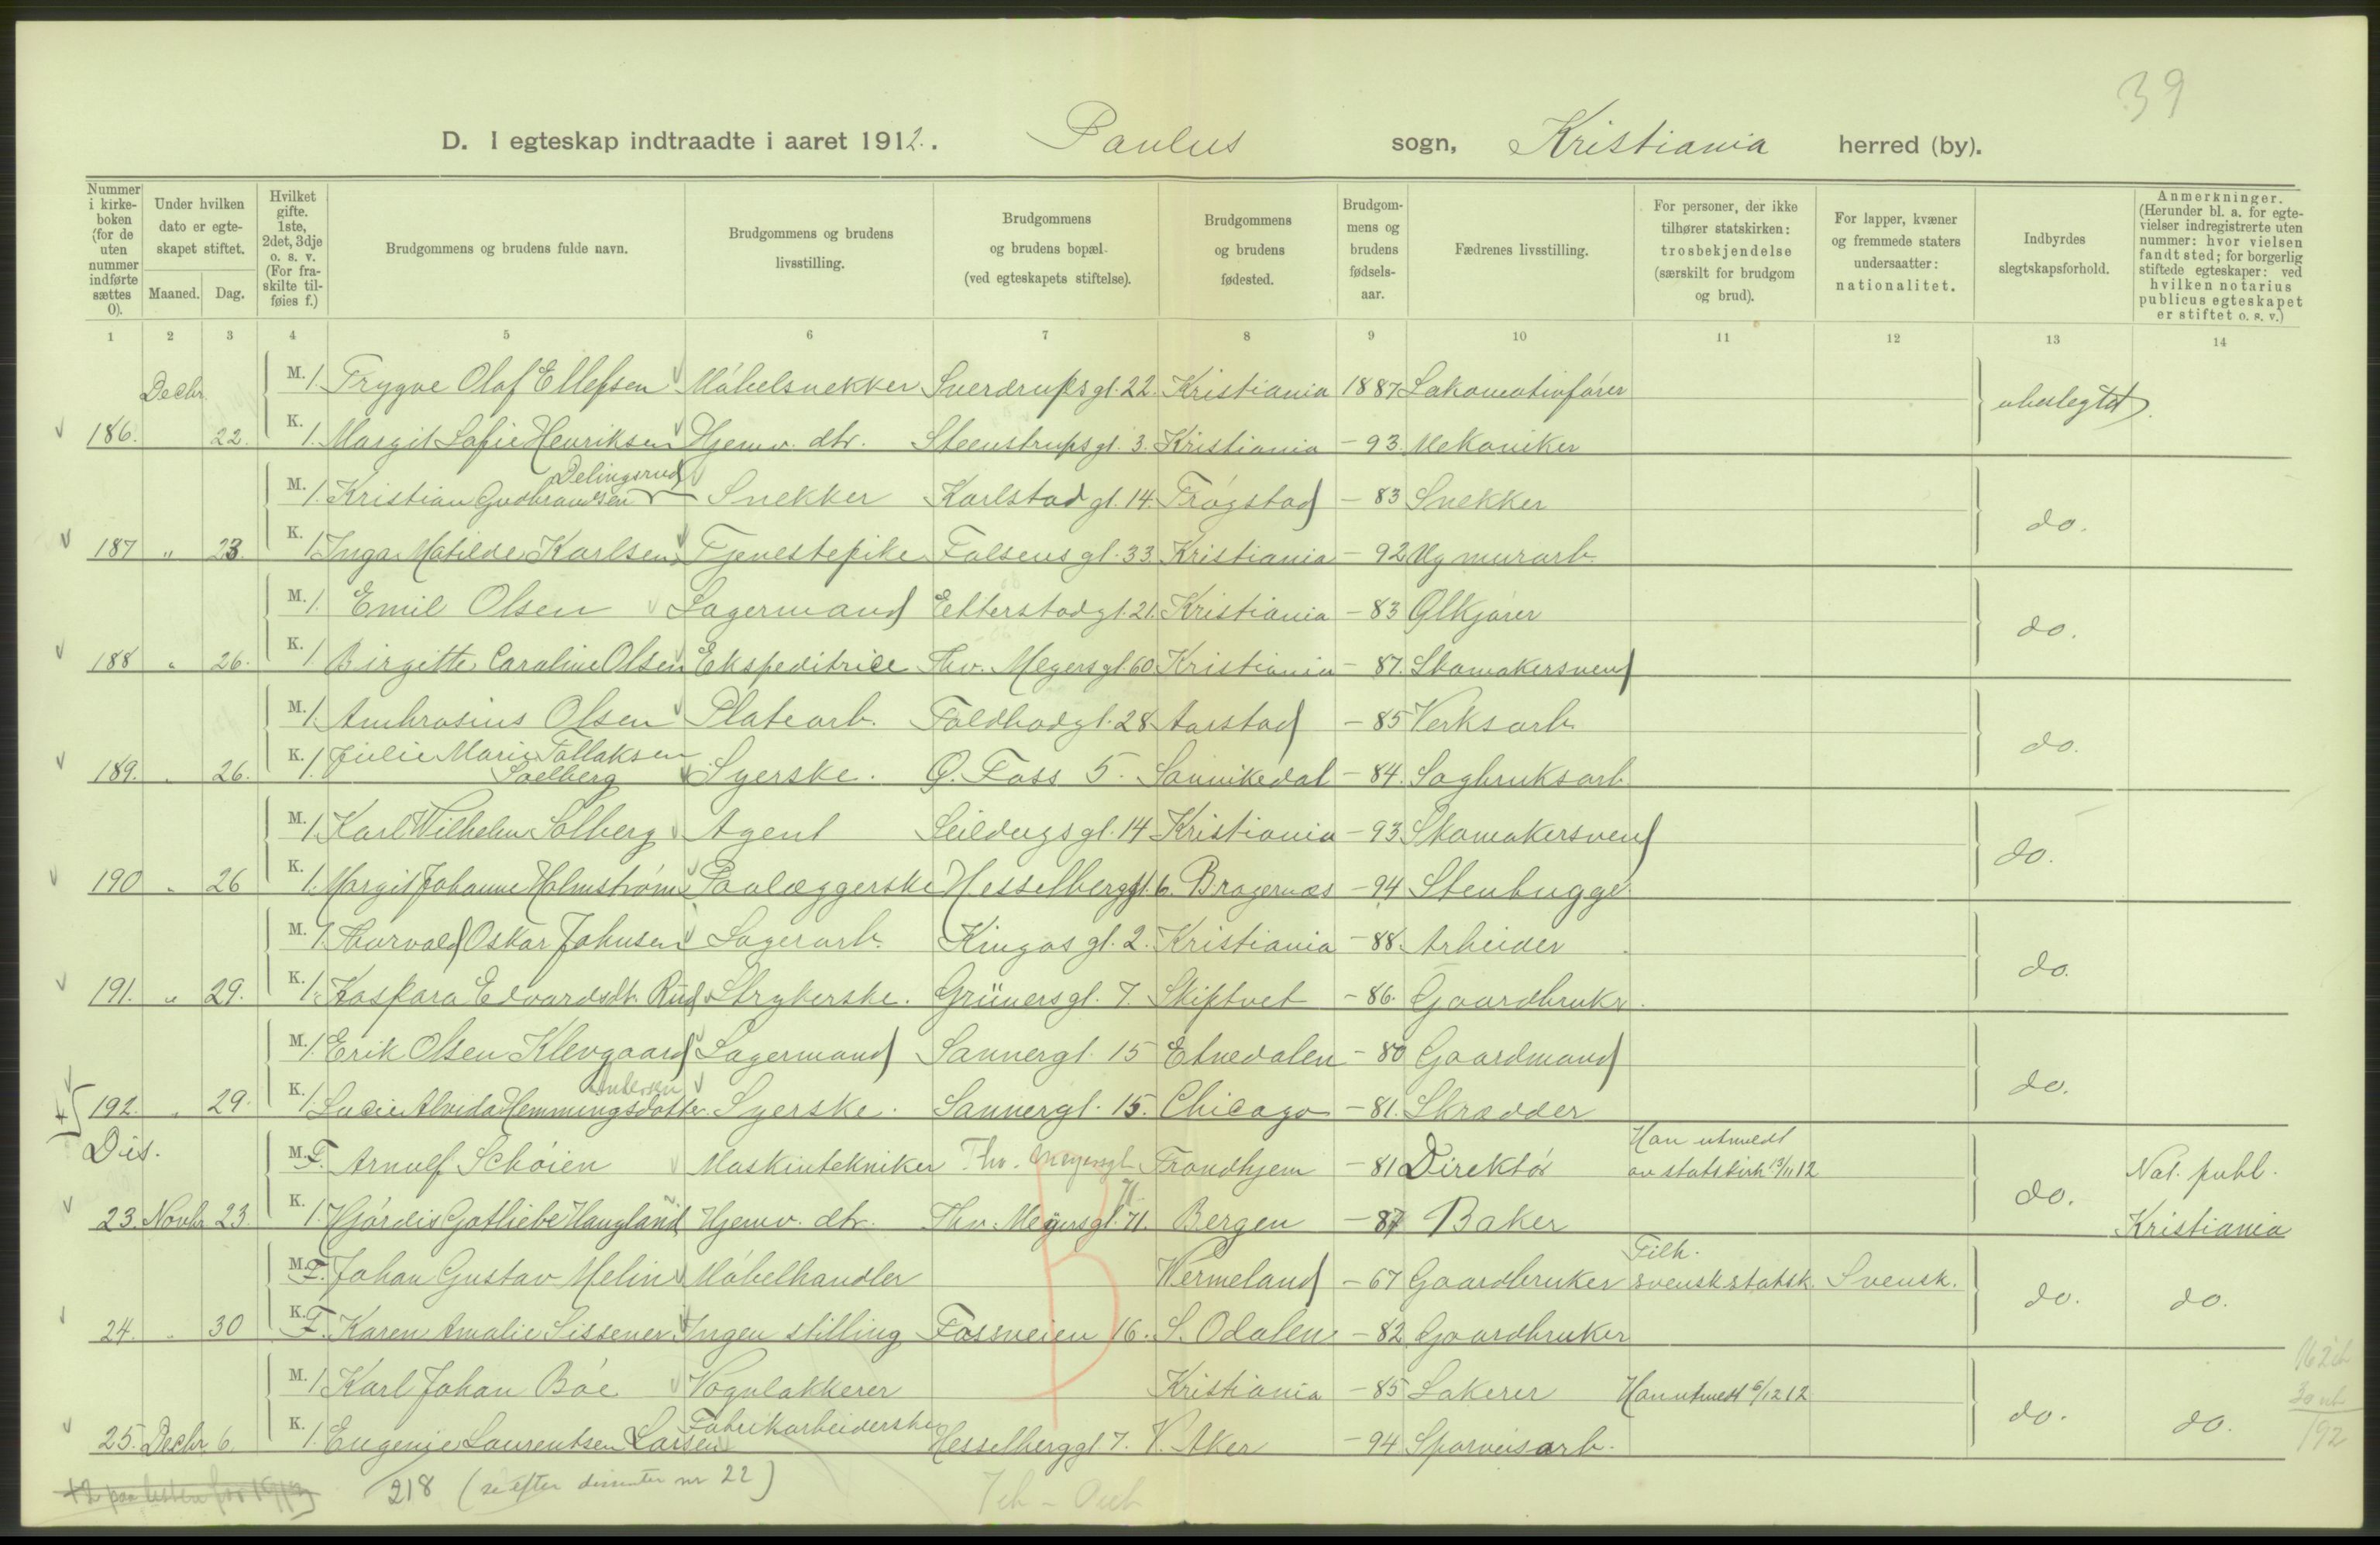 39
D. I egteskap indtraadte i aaret 1912. Paulus sogn, Kristiania herred (by).
Nummer i kirke-boken (for de uten nummer indførte sættes 0).
Under hvilken dato er egte-skapet stiftet.
Maaned. Dag.
Hvilket gifte. 1ste, 2det, 3dje o. s. v. (For fra-skilte til-føies f.)
Brudgommens og brudens fulde navn.
Brudgommens og brudens livsstilling.
Brudgommens og brudens bopæl. (ved egteskapets stiftelse).
Brudgommens og brudens fødested.
Brudgom-mens og brudens fødsels-aar.
Fædrenes livsstilling.
For personer, der ikke tilhører statskirken: trosbekjendelse (særskilt for brudgom og brud).
For lapper, kvæner og fremmede staters undersaatter: nationalitet.
Indbyrdes slegtskapsforhold.
Anmerkninger. (Herunder bl. a. for egte-vielser indregistrerte uten nummer: hvor vielsen fandt sted; for borgerlig stiftede egteskaper: ved hvilken notarius publicus egteskapet er stiftet o. s. v.)
1 2 3 4 5 6 7 8 9 10 11 12 13 14
Decbr. M. 1. Trygve Olaf Ellefsen Møbelsnekker Sverdrupsgt. 22. Kristiania 1887 Lokomotivfører ubeslegtet.
186. 22. K. 1. Margit Sofie Henriksen Hjemv. dtr. Steenstrupsgt. 3. Kristiania - 93. Mekaniker
Delingsrud
M. 1. Kristian Gudbrandsen Snekker Karlstadgt. 14. Trøgstad - 83 Snekker do.
187 " 23. K. 1 Inga Matilde Karlsen Tjenestepike Falsensgt. 33. Kristiania - 92 Ug murarb.
M. 1. Emil Olsen Lagermand Etterstadgt. 21. Kristiania - 83 Ølkjører do.
188 " 26. K. 1 Birgitte Caroline Olsen Ekspeditrice Thv. Meyersgt 60 Kristiania - 87. Skomakersvend
M. 1. Ambrosius Olsen Platearb. Toldbodgt. 28 Aarstad - 85 Verksarb. do.
K. 1. Julie Marie Tallaksen
189. " 26. Solberg Syerske. Ø. Foss 5. Sannikedal - 84. Sagbruksarb.
M. 1. Karl Wilhelm Solberg Agent Seildugsgt. 14 Kristiania - 93 Skomakersvend do.
190 " 26 K. 1. Margit Johanne Holmstrøm Paalæggerske Hesselberggt. 6. Bragernæs - 94 Stenhugger
M. 1. Thorvald Oskar Johnsen Lagerarb. Kingosgt. 2. Kristiania - 88. Arbeider do.
191. " 29. K. 1. Kaspara Edvardsdtr. Rud Strykerske. Grünersgt. 7. Skiptvet - 86. Gaardbruker.
M. 1. Erik Olsen Klevgaard Lagermand Sannergt. 15 Etnedalen - 80 Gaardmand do.
Andersen
192. " 29. K. 1. Lucie Alvida Hemmingsdotter Syerske. Sannergt. 15. Chicago - 81. Skrædder
Dis. M. F. Arnulf Schøien Maskintekniker Thv. Meyersgt 71. Trondhjem - 81 Direktør Han utmeldt av statskirk 13/11 12 do. Not. publ.
23. Novbr 23. K. 1. Hjørdis Gotliebe Haugland Hjemv. dtr. Thv. Meyersgt. 71. Bergen - 87 Baker Kristiania
M. F. Johan Gustav Melin Møbelhandler Wermeland - 67 Gaardbruker Tilh. svensk statsk. Svensk. do. do.
24. " 30 K. F. Karen Amalie Sissener Ingen stilling Fossveien 16. S. Odalen - 82 Gaardbruker
M. 1 Karl Johan Bøe Vognlakkerer Kristiania - 85 Lakerer Han utmeldt 6/12 12 do. do.
25. Decbr 6. K. 1. Eugenie Laurentsen Larsen Fabrikarbeiderske Hesselberggt 7. V. Aker - 94 Sporveisarb.
192
218 (se efter dissenter nr 22)